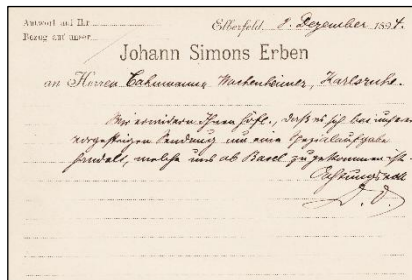 Antwort auf Ihr
Bezug auf unser
Elberfeld, 8. Dezember 1894.
Johann Simons Erben
an Herren Wachenheimer, Karlsruhe.
Wir erwidern Ihnen höfl., daß es sich bei unserer
vorgestrigen Sendung um eine Spezialaufgabe
handelt, welche uns ab Basel zugekommen ist.
Achtungsvoll